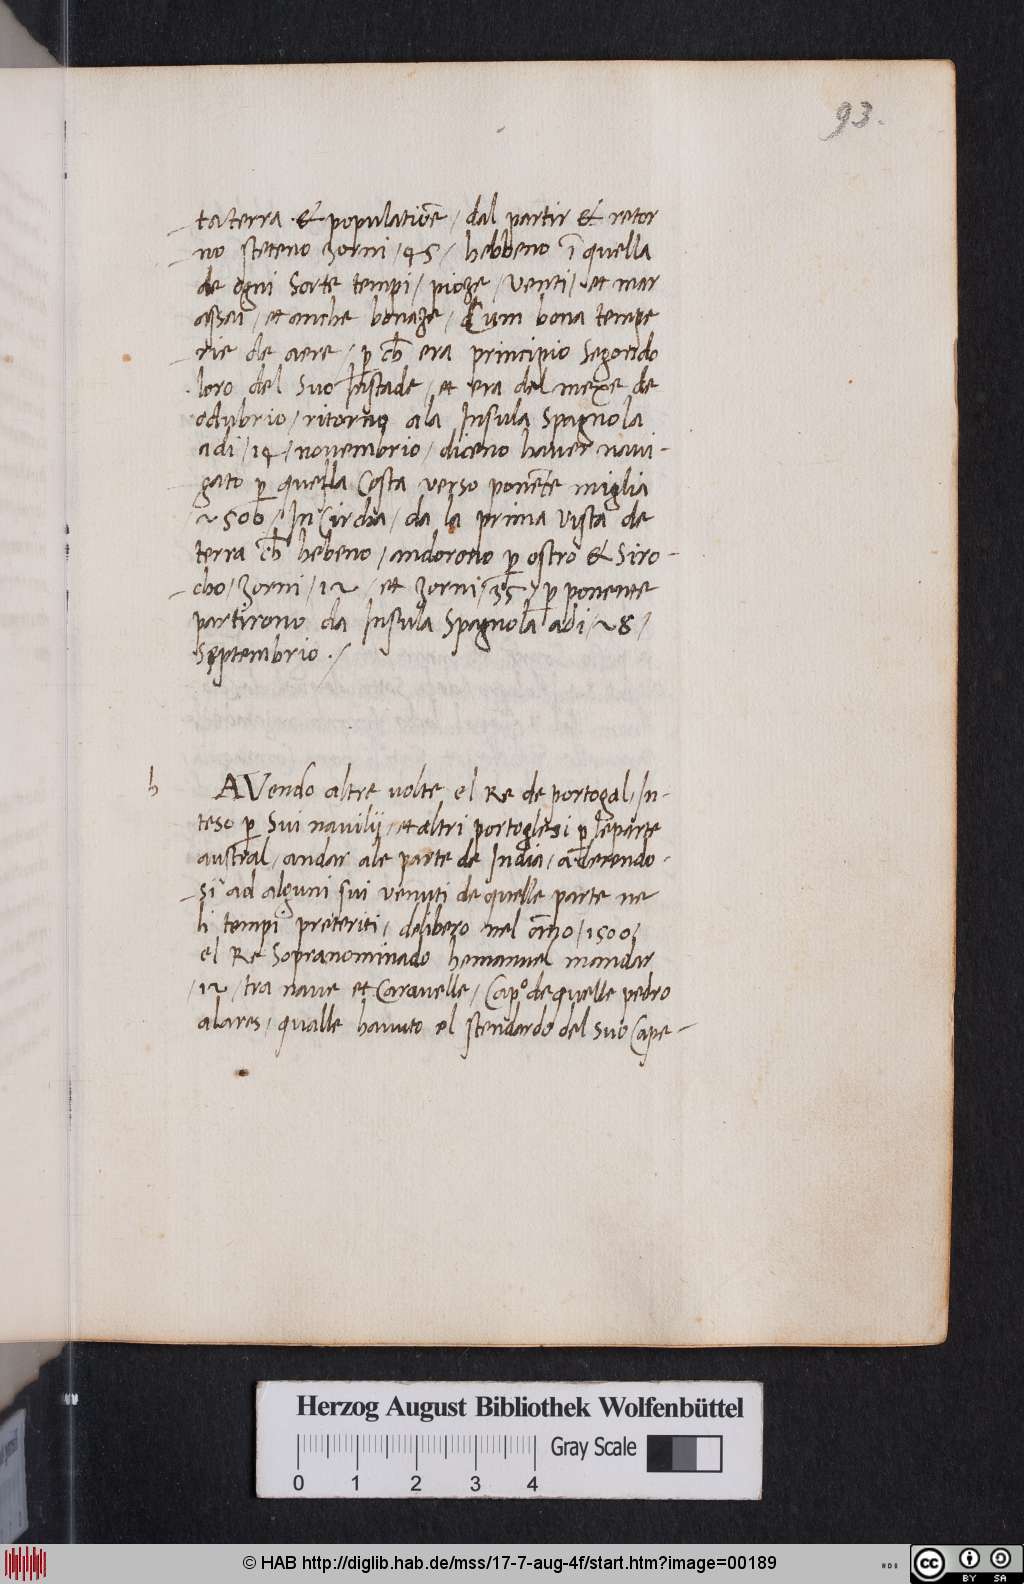 93.
ta terra · & populatiõe / dal partir & retor
no steteno zorni / 45 / hebbeno ĩ quella
de ogni Sorte tempi / pioze / venti / et mar
assai / et anche bonaze / Cum bona tempe
rie de aere / p̱ cħ era principio Segondo
loro del Suo Instade / et era del mexe de
odubrio / ritorno ala Insula Spagnola
adi / 14 / novembrio / diceno haver navi-
gato p̱ quella Costa verso ponẽte miglia
/ 2500 / In Circha / da la prima vista de
terra cħ hebeno / andorono p̱ ostro & Siro-
cho / zorni / 12 / et zorni / 35 / p̱ ponente
partirono da Insula Spagnola adi / 28 /
Septembrio . /
b
AVendo altre volte el Re de portogal / In-
teso p̱ Sui navilij / et altri portoglesi p̱ le parte
austral / andar ale parte de India / acherendo-
si ad alguni sui venuti de quelle parte ne
li tempi preteriti / delibero nel ãno / 1500 /
el Re Sopranominado hemanuel mandar
/ 12 / tra nave et Caravelle / Capº de quelle pedro
alares / qualle havuto el stendardo del suo Cape-
Herzog August Bibliothek Wolfenbüttel
Gray Scale
0 1 2 3 4
© HAB http://diglib.hab.de/mss/17-7-aug-4f/start.htm?image=00189
cc BY SA